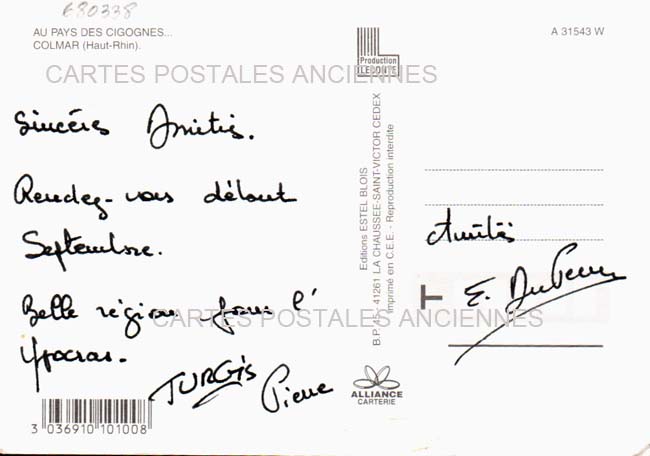 680338
AU PAYS DES CIGOGNES...
COLMAR (Haut-Rhin).
Production
LECONTE
A 31543 W
CARTES POSTALES ANCIENNES
Sincères Amitiés.
Rendez-vous début
Septembre.
Belle région pour l'
Ypocras.
TURGIS Pierre
Editions ESTEL BLOIS
B.P. 45 - 41261 LA CHAUSSEE-SAINT-VICTOR CEDEX
Imprimé en C.E.E. - Reproduction interdite
Amitiés
E.
CARTES POSTALES ANCIENNES
ALLIANCE
CARTERIE
3 036910 101008